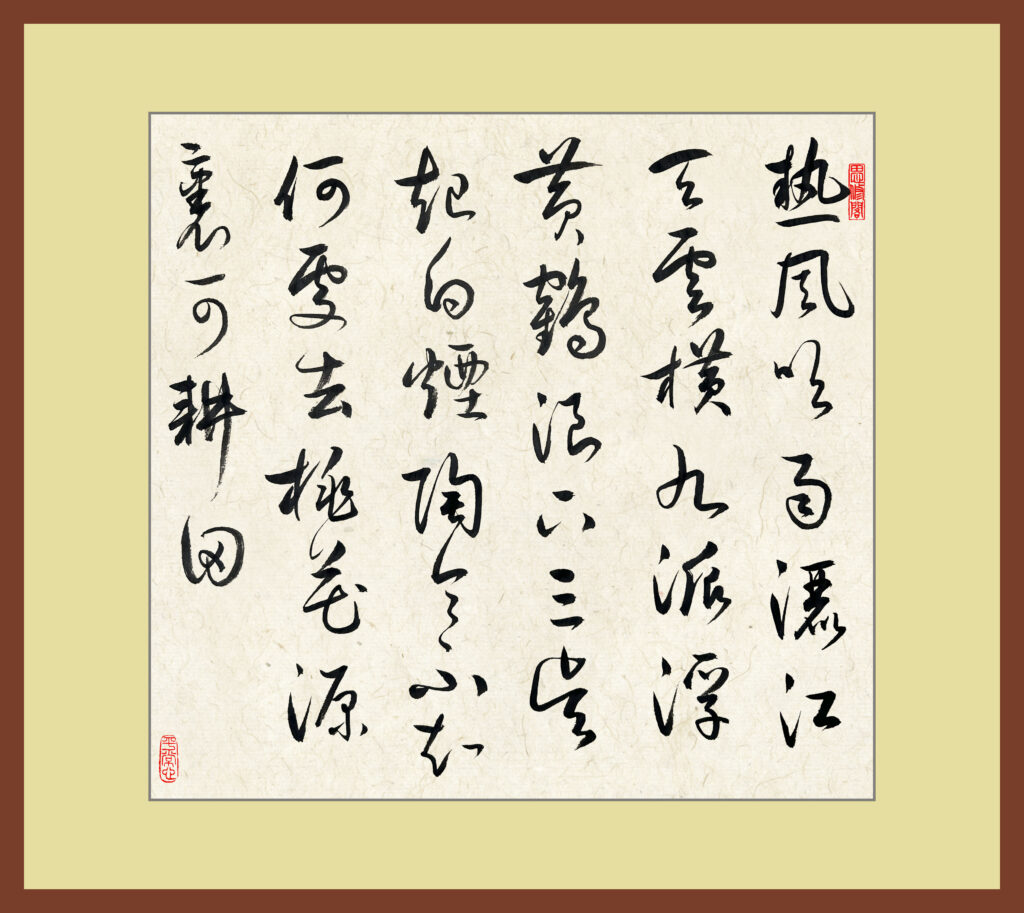 熱風吹雨灑江
天雲橫九派浮
黃鶴浪下三吳
起白煙陶令不知
何處去桃花源
裏可耕田
平常心